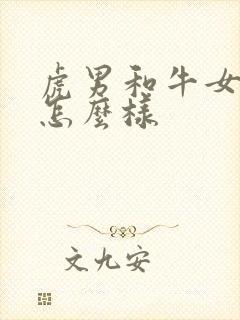 虎男和牛女
怎麼樣
文九安